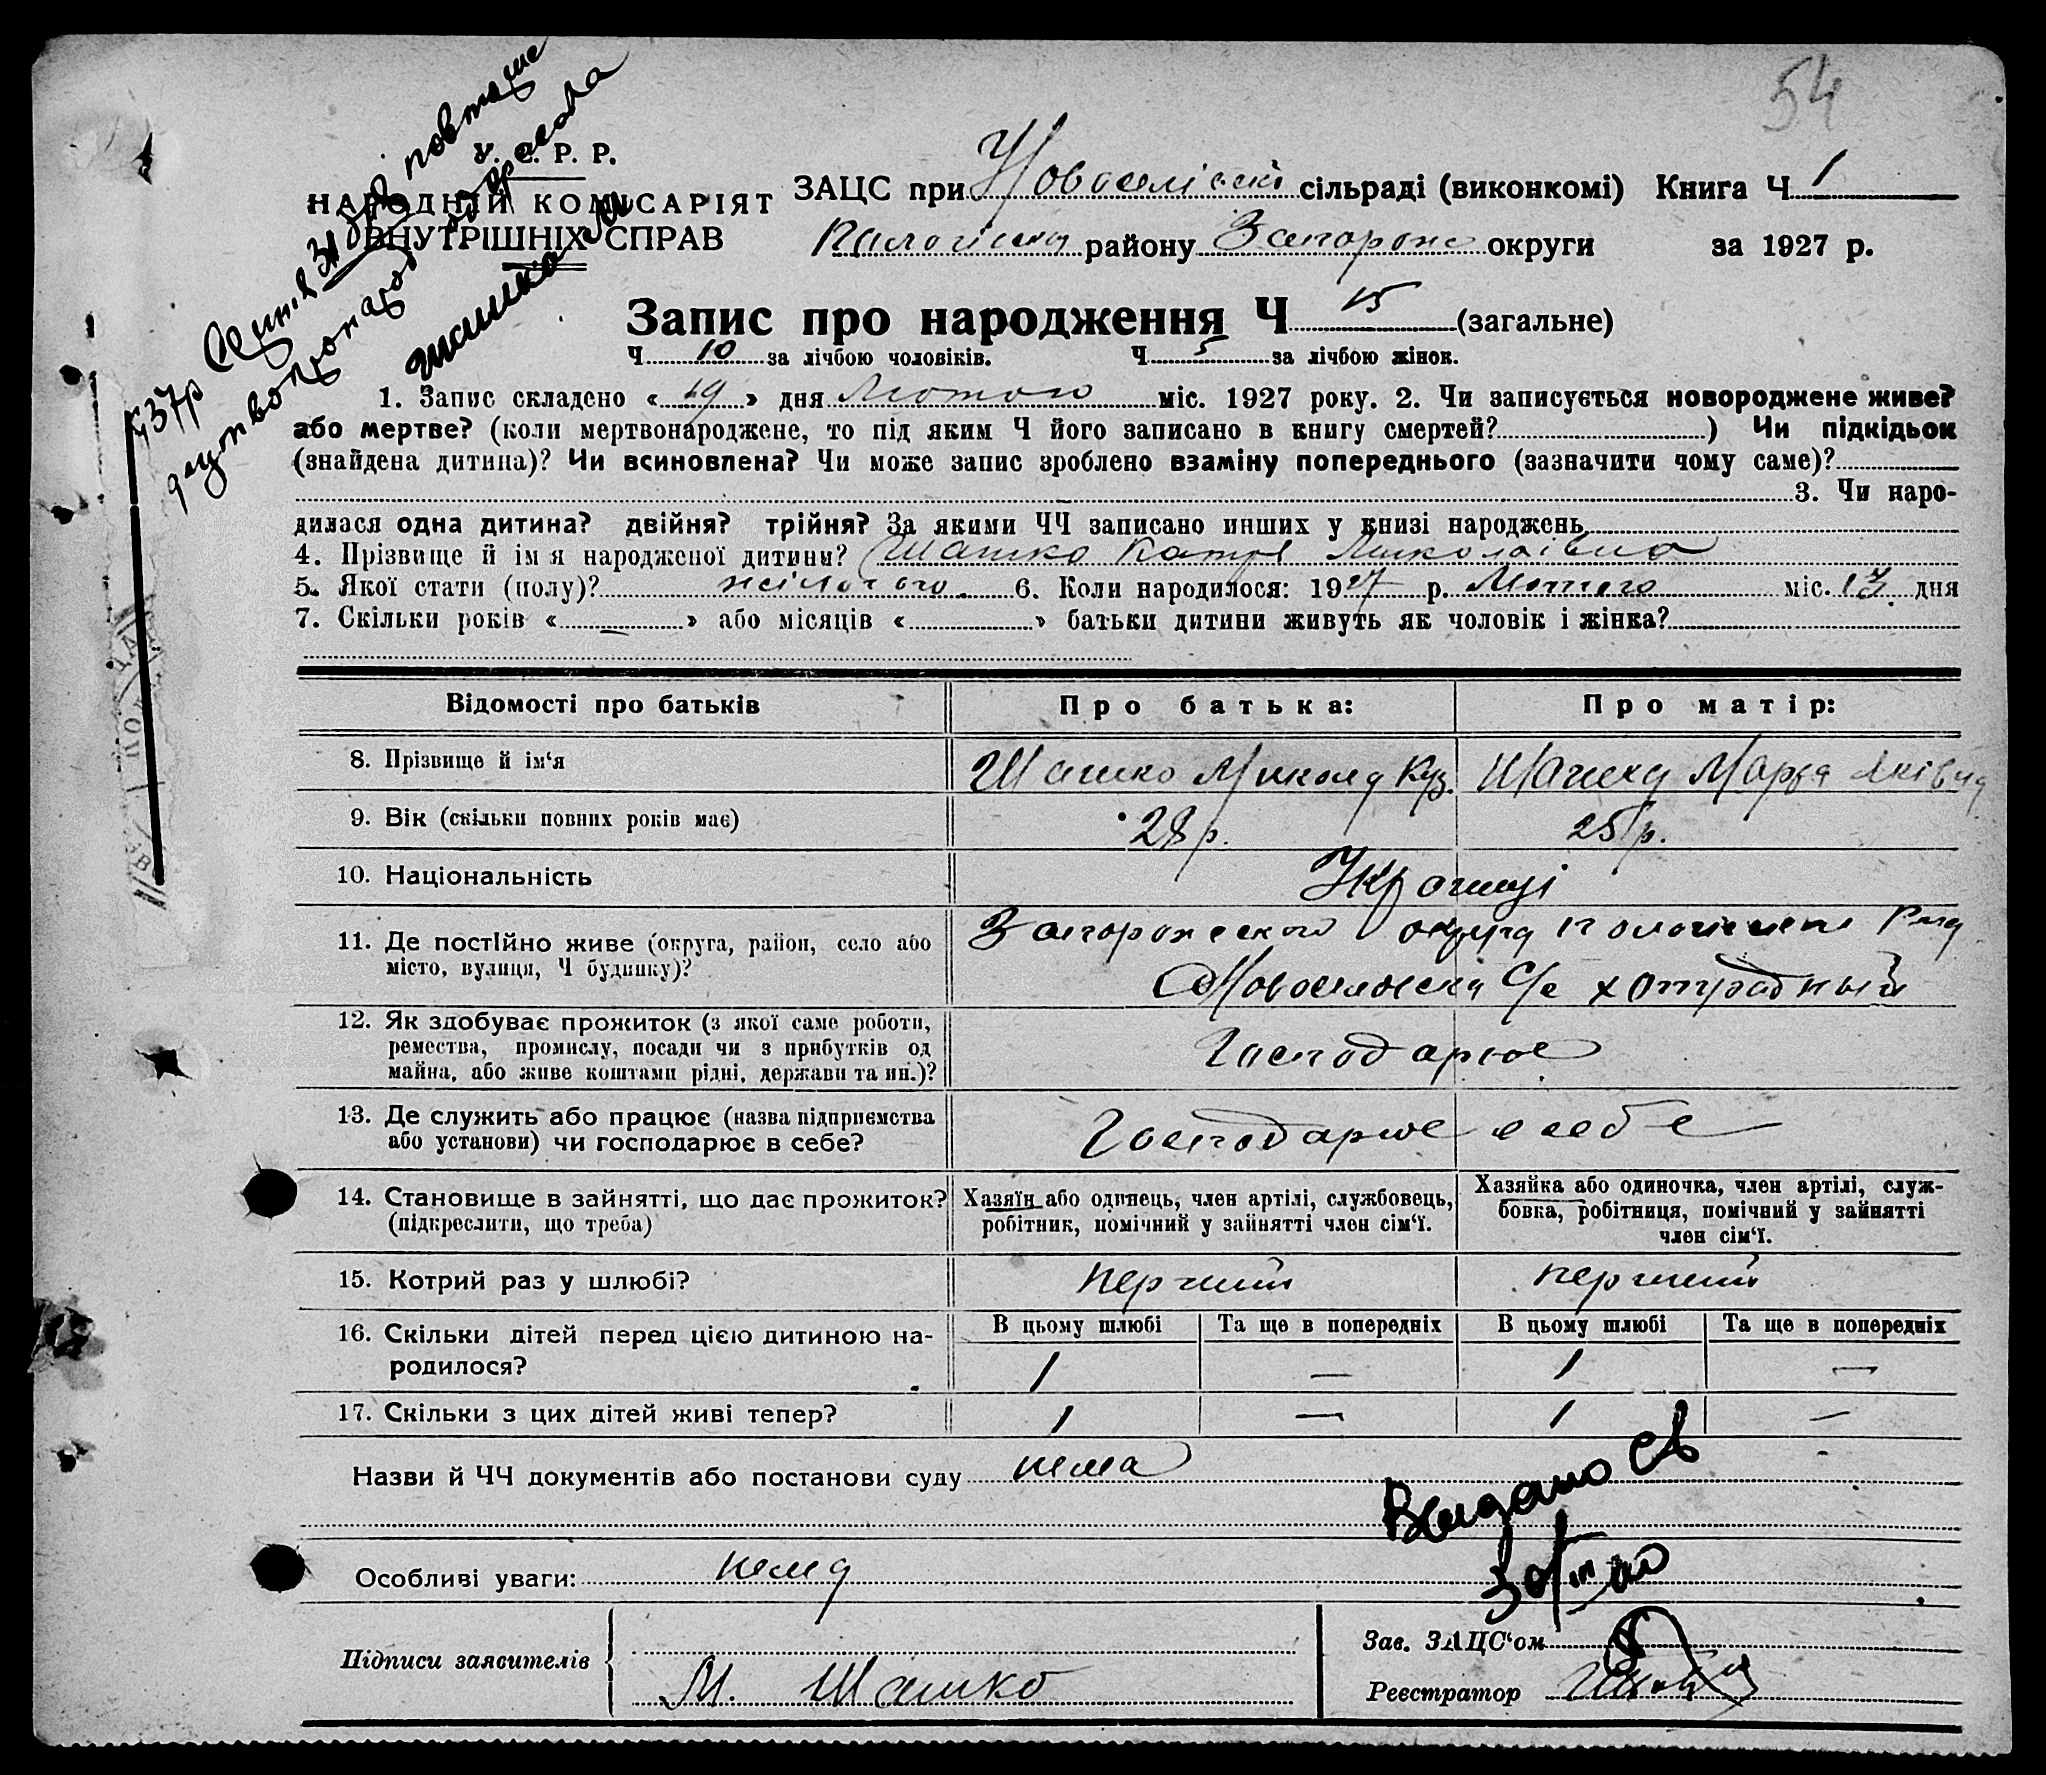 54
У. С. Р. Р.
НАРОДНІЙ КОМІСАРІЯТ
ВНУТРІШНІХ СПРАВ
ЗАЦС при сільраді (виконкомі) Книга Ч 1
району Запорожс округи за 1927 р.
Запис про народження Ч 15 (загальне)
Ч 10 за лічбою чоловіків. Ч 5 за лічбою жінок.
1. Запис складено « 19 » дня Лютого міс. 1927 року. 2. Чи записується новороджене живе?
або мертве? (коли мертвонароджене, то під яким Ч його записано в книгу смертей? ) Чи підкідьок
(знайдена дитина)? Чи всиновлена? Чи може запис зроблено взаміну попереднього (зазначити чому саме)?
3. Чи наро-
дилася одна дитина? двійня? трійня? За якими ЧЧ записано инших у книзі народжень
4. Прізвище й ім я народженої дитини? Шашко Миколаівна
5. Якої стати (полу)? 6. Коли народилося: 1927 р. Лютого міс. 13 дня
7. Скільки років « — » або місяців « » батьки дитини живуть як чоловік і жінка?
Відомості про батьків Про батька: Про матір:
8. Прізвище й ім‘я Шашко Микола Куз. Марфа Яківна
9. Вік (скільки повних років має) 28 р. 25 р.
10. Національність Українці
11. Де постійно живе (округа, район, село або
місто, вулиця, Ч будинку)?
Запорожского округа
12. Як здобуває прожиток (з якої саме роботи,
ремества, промислу, посади чи з прибутків од
майна, або живе коштами рідні, держави та ин.)?
Господарює
13. Де служить або працює (назва підприємства
або установи) чи господарює в себе?
Господарює в себе
14. Становище в зайнятті, що дає прожиток?
(підкреслити, що треба)
Хазяїн або одинець, член артілі, службовець,
робітник, помічний у зайнятті член сім‘ї.
Хазяйка або одиночка, член артілі, служ-
бовка, робітниця, помічний у зайнятті
член сім‘ї.
15. Котрий раз у шлюбі? перший перший
16. Скільки дітей перед цією дитиною на-
родилося?
В цьому шлюбі Та ще в попередніх В цьому шлюбі Та ще в попередніх
1 — 1 —
17. Скільки з цих дітей живі тепер? 1 — 1 —
Назви й ЧЧ документів або постанови суду нема
Видано св
Особливі уваги: нема
Підписи заявителів
М. Шашко
Зав. ЗАЦС‘ом
Реєстратор